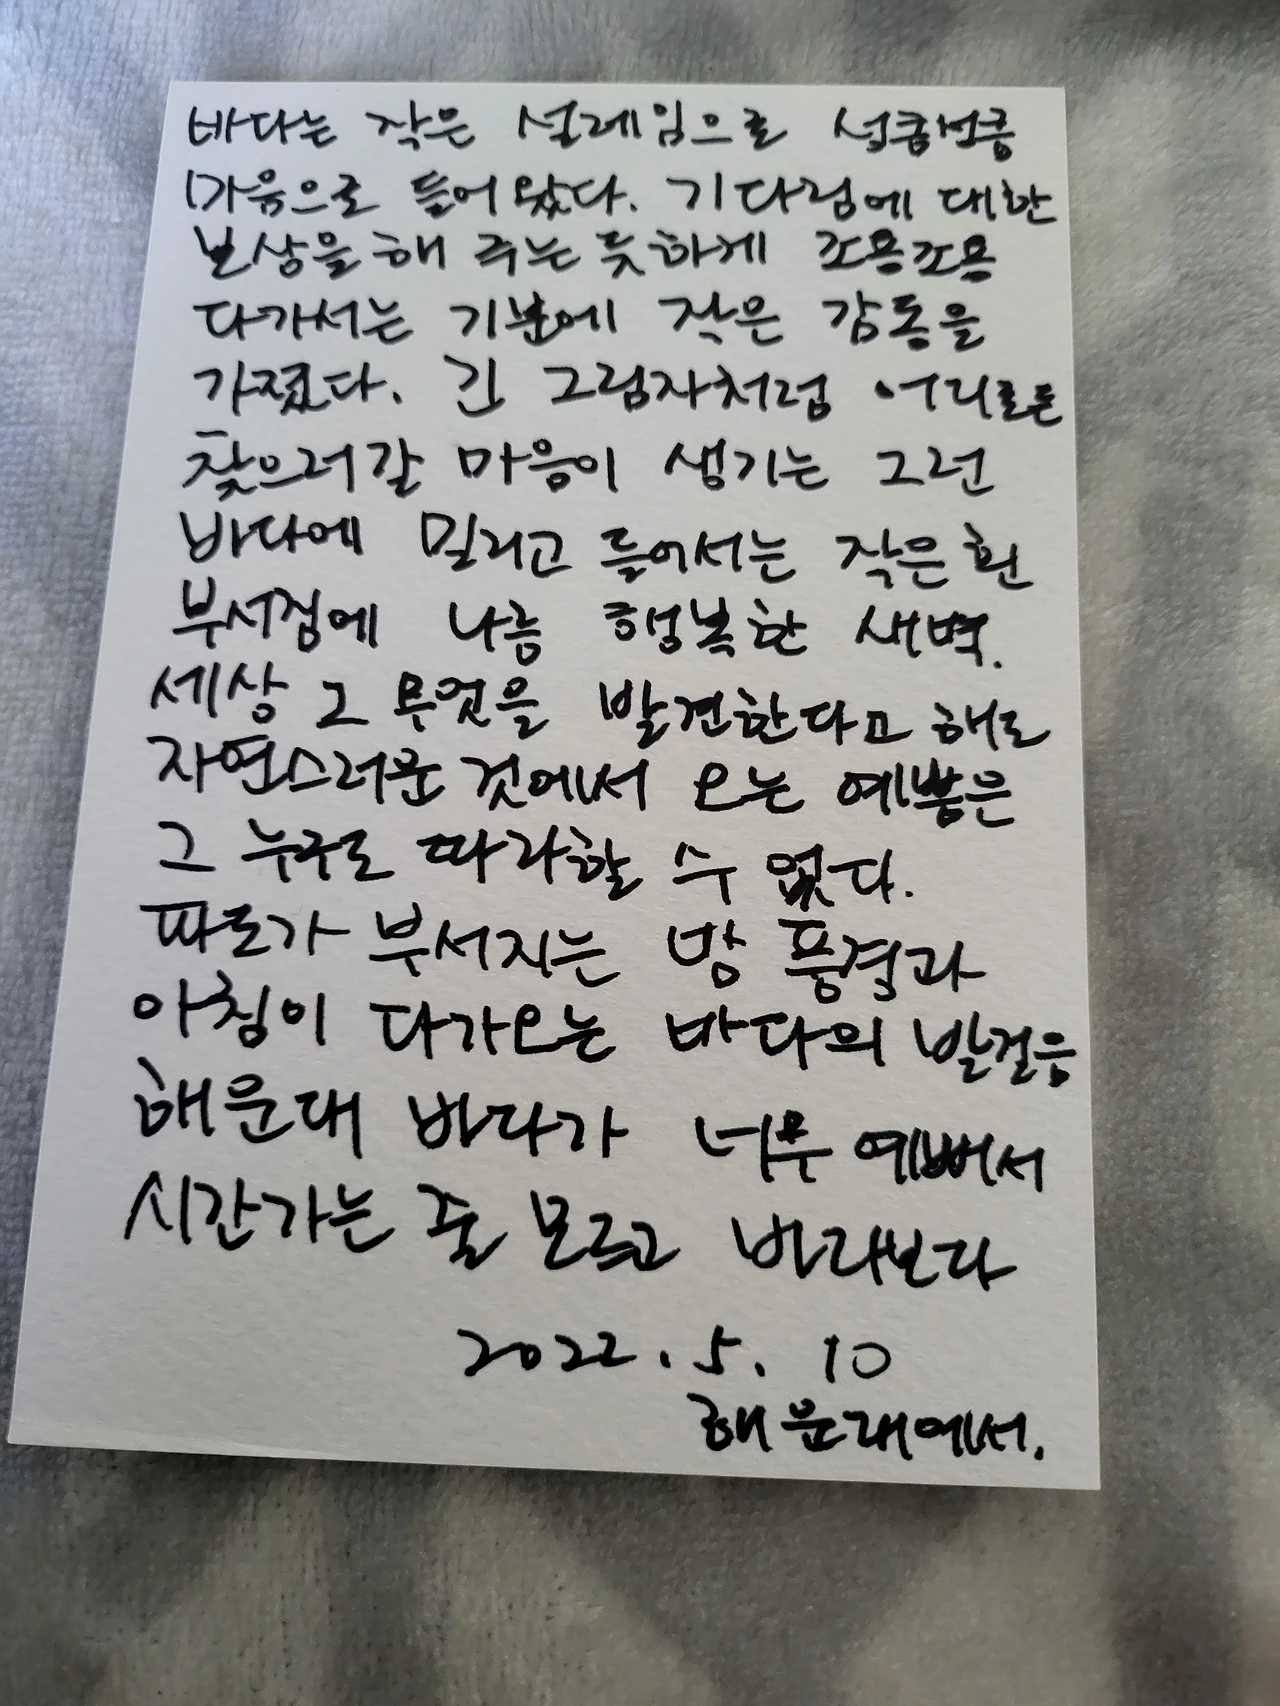 바다는 작은 설레임으로 성큼성큼
마음으로 들어 왔다. 기다림에 대한
보상을 해 주는 듯하게 조용조용
다가서는 기분에 작은 감동을
가졌다. 긴 그림자처럼 어디로든
찾으러갈 마음이 생기는 그런
바다에 밀리고 들어서는 작은 흰
부서짐에 나름 행복한 새벽.
세상 그 무엇을 발견한다고 해도
자연스러운 것에서 오는 예쁨은
그 누구도 따라할 수 없다.
파도가 부서지는 밤 풍경과
아침이 다가오는 바다의 발걸음
해운대 바다가 너무 예뻐서
시간가는 줄 모르고 바라보다
2022. 5. 10
해운대에서.